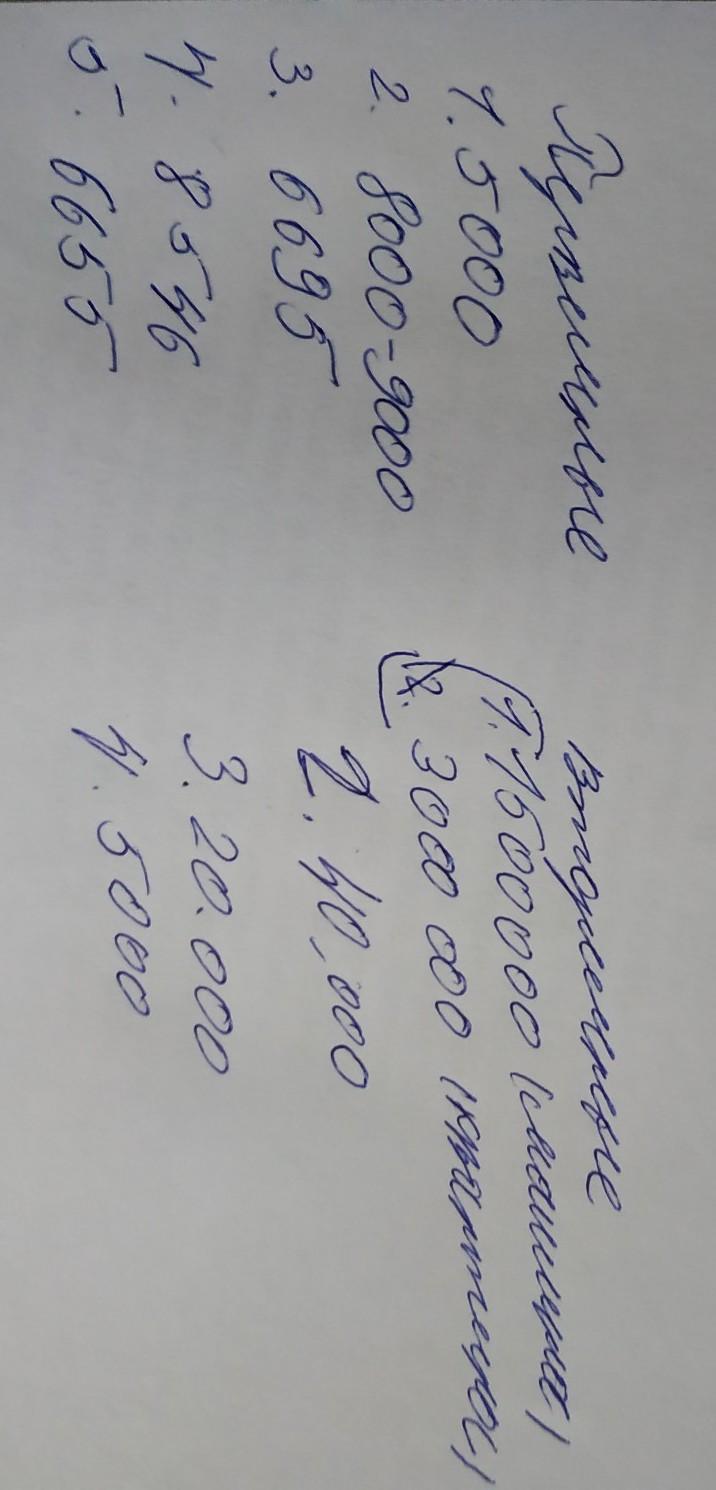 Первичные
1. 5000
2. 8000-9000
3. 6695
4. 8546
5. 6655
вторичные
1. 1500000 (машина)
3000 000 (квартира)
2. 40,000
3. 20.000
4. 5000